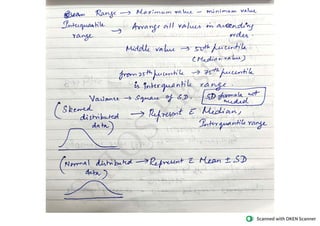 Range → Maximum value - minimum value
Interquantile range → Arrange all values in ascending order.
Middle value → 50th pucentile
(Median value)
from 25th pucentile → 75th pucentile
is Interquantile range.
Variance → Square of SD. SD formula not needed
(Skewed distributed data) → Represent c̄ Median, Interquantile range
(Normal distributed data) → Represent c̄ Mean ± SD
Scanned with OKEN Scanner